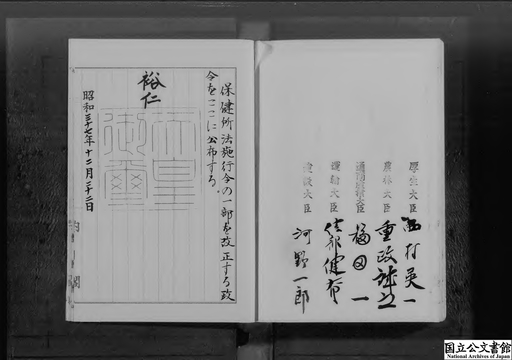 厚生大臣 西村英一
農林大臣 重政誠之
通商産業大臣 福田一
運輸大臣 綾部健太郎
建設大臣 河野一郎
保健所法施行令の一部を改正する政
令をここに公布する。
裕仁
天皇御璽
昭和三十七年十二月二十二日
内閣
国立公文書館
National Archives of Japan